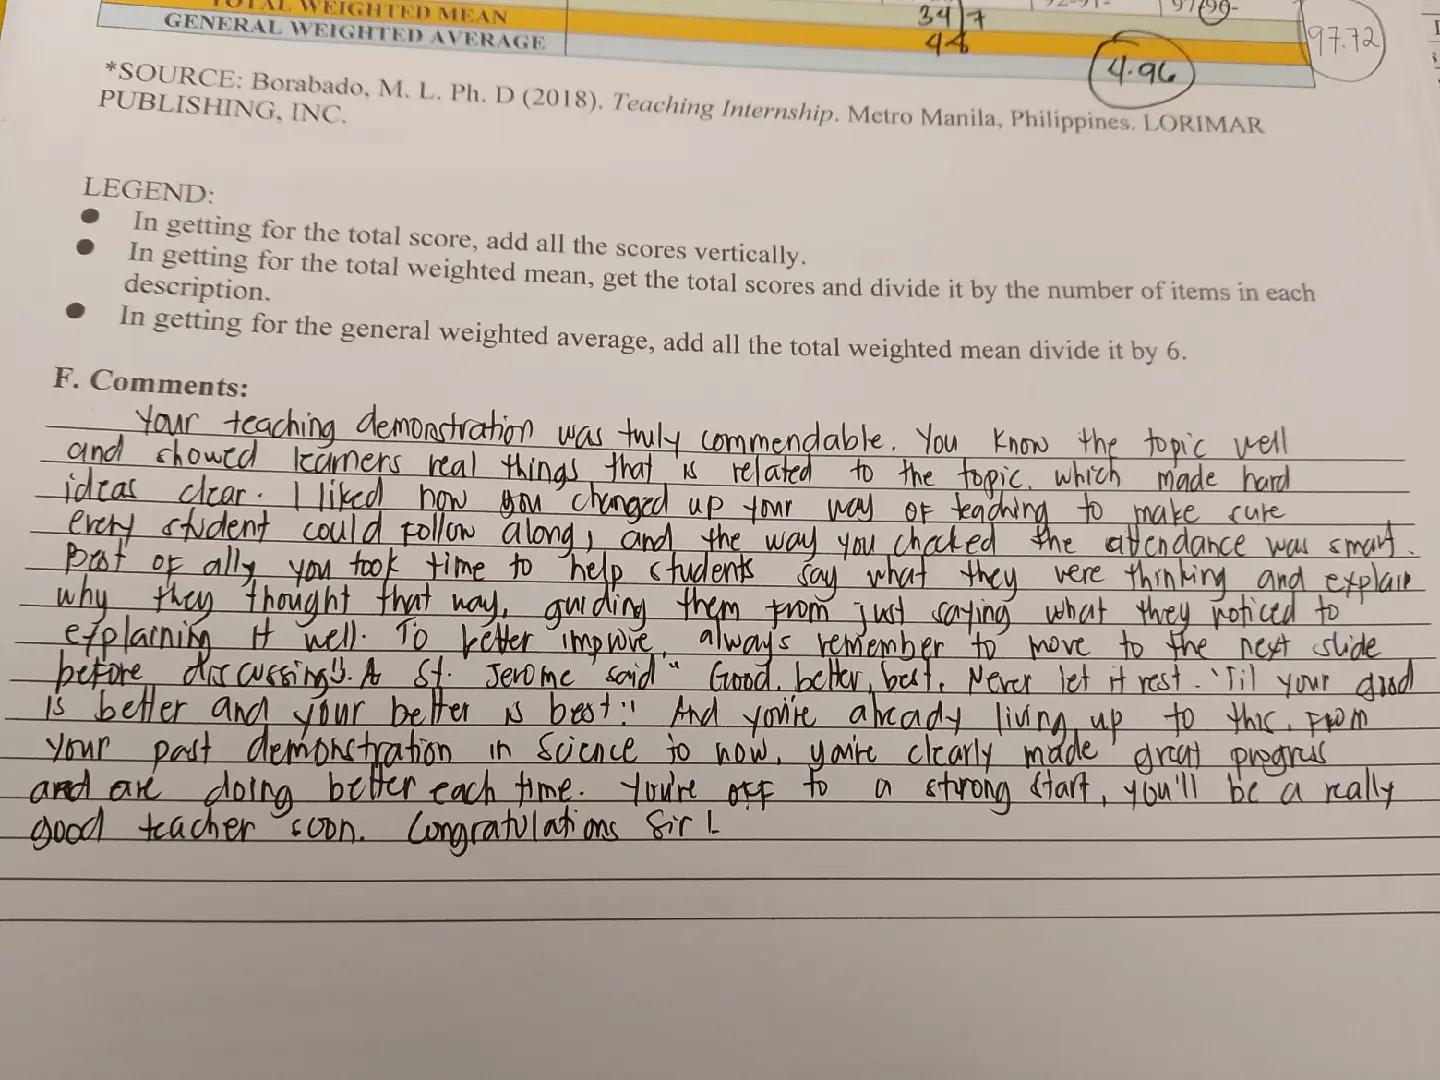 TOTAL WEIGHTED MEAN
GENERAL WEIGHTED AVERAGE
34 7
44
4.96
97.72
*SOURCE: Borabado, M. L. Ph. D (2018). Teaching Internship. Metro Manila, Philippines. LORIMAR
PUBLISHING, INC.
LEGEND:
● In getting for the total score, add all the scores vertically.
● In getting for the total weighted mean, get the total scores and divide it by the number of items in each
description.
● In getting for the general weighted average, add all the total weighted mean divide it by 6.
F. Comments:
Your teaching demonstration was truly commendable. You know the topic well
and showed learners real things that is related to the topic, which made hard
ideas clear. I liked how you changed up your way of teaching to make sure
every student could follow along, and the way you checked the attendance was smart.
Best of all, you took time to help students say what they were thinking and explain
why they thought that way, guiding them from just saying what they noticed to
explaining it well. To better improve, always remember to move to the next slide
before discussing. A St. Jerome said "Good, better, best. Never let it rest. 'Til your good
is better and your better is best." And you're already living up to this. From
your past demonstration in Science to now, you're clearly made great progress
and are doing better each time. You're off to a strong start, you'll be a really
good teacher soon. Congratulations Sir!